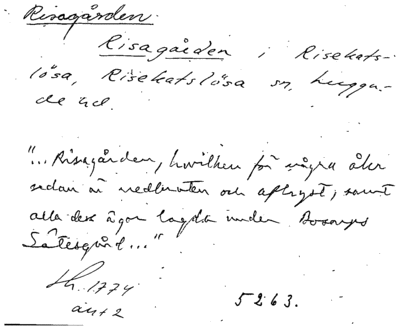 Risagården.
Risagården i Risekats-
lösa, Risekatslösa sn, Luggu-
de hd.
"... Risagården, hvilken för några åhr
sedan är nedbruten och afhyst, samt
alla dess ägor lagda under Bosarps
Sätesgård..."
Lh. 1774
ant 2
5263.